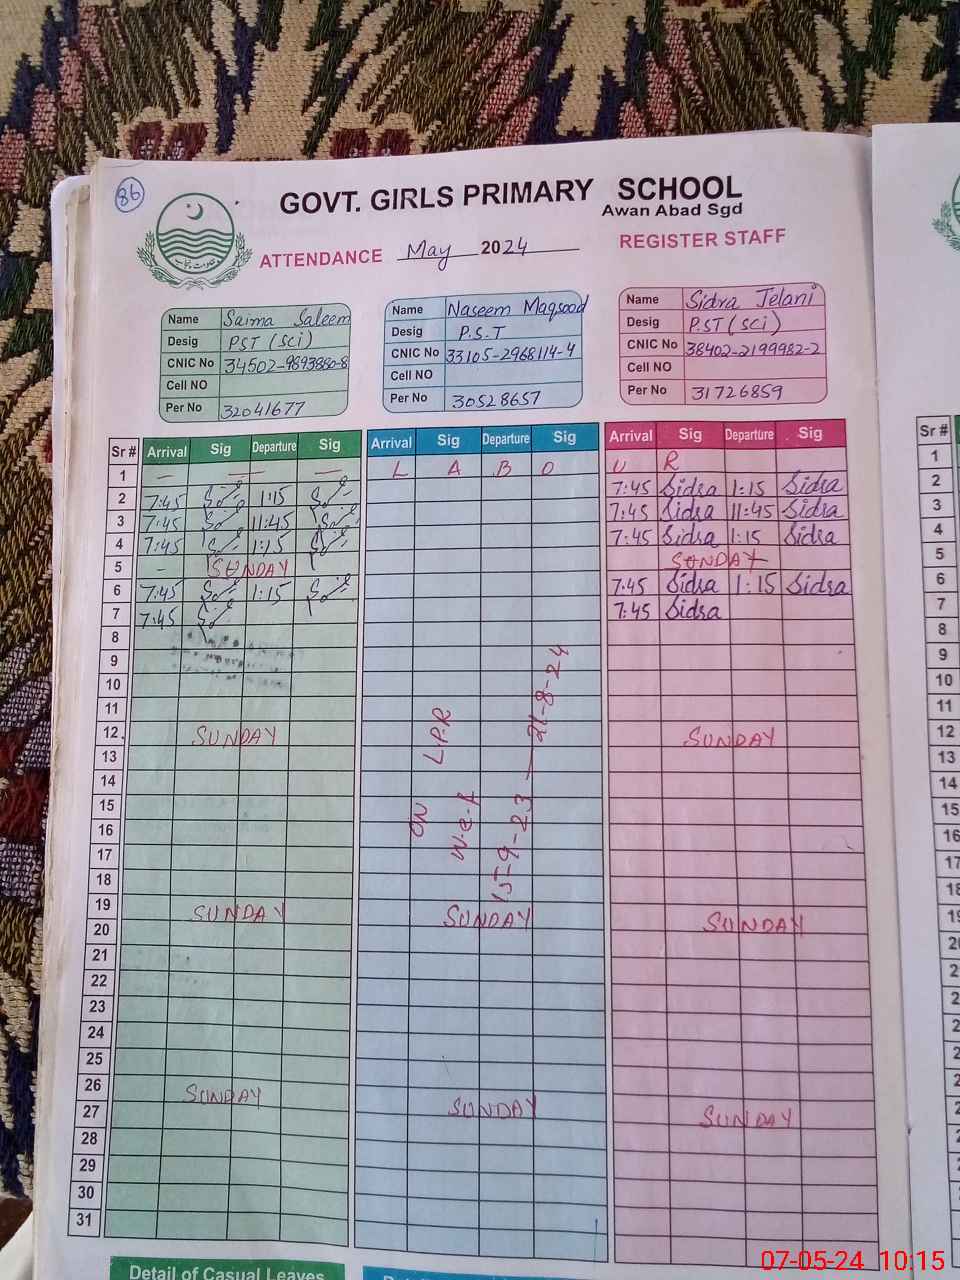 86
GOVT. GIRLS PRIMARY SCHOOL
Awan Abad Sgd
ATTENDANCE May 2024 REGISTER STAFF
Name Saima Saleem
Desig PST (sci)
CNIC No 34502-9893880-8
Cell NO
Per No 32041677
Name Naseem Maqsood
Desig P.S.T
CNIC No 33105-2968114-4
Cell NO
Per No 30528657
Name Sidra Jelani
Desig P.ST (sci)
CNIC No 38402-2199982-2
Cell NO
Per No 31726859
Sr # Arrival Sig Departure Sig Arrival Sig Departure Sig Arrival Sig Departure Sig Sr #
1 — — — L A B O U R 1
2 7:45 1:15 7:45 Sidra 1:15 Sidra 2
3 7:45 11:45 7:45 Sidra 11:45 Sidra 3
4 7:45 1:15 7:45 Sidra 1:15 Sidra 4
5 - SUNDAY SUNDAY 5
6 7:45 1:15 7:45 Sidra 1:15 Sidra 6
7 7:45 7:45 Sidra 7
8 8
9 9
10 10
11 11
12 SUNDAY SUNDAY 12
13 13
14 14
15 15
16 16
17 17
18 18
19 SUNDAY SUNDAY SUNDAY
20
21
22
23
24
25
26 SUNDAY SUNDAY SUNDAY
27
28
29
30
31
ON L.P.R
W.e.f
15-9-23 — 21-8-24
Detail of Casual Leaves
07-05-24 10:15